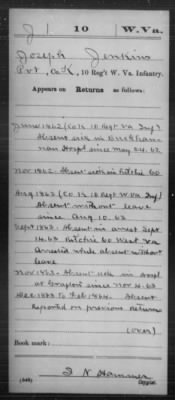 J 10 W. Va.
Joseph Jenkins
Pvt, Co K, 10 Reg't W. Va. Infantry.
Appears on Returns as follows:
June 1862 (Co K 10 Regt Va Inf)
Absent sick in Buckhan-
non Hospl since May 24.62
Nov 1862. Absent sick in Ritchie Co
Aug 1863 (Co K 10 Regt W. Va Inf)
Absent without leave
since Aug 10.63
Sept 1863. Absent in arrest Sept
14.63 Ritchie Co West Va
Arrested while absent without
leave
Nov 1863. Absent sick in Hospl
at Grafton since Nov 4.63
Dec 1863 to Feb 1864. Absent
Reported on previous returns
(over)
Book mark:
(546) Copyist.